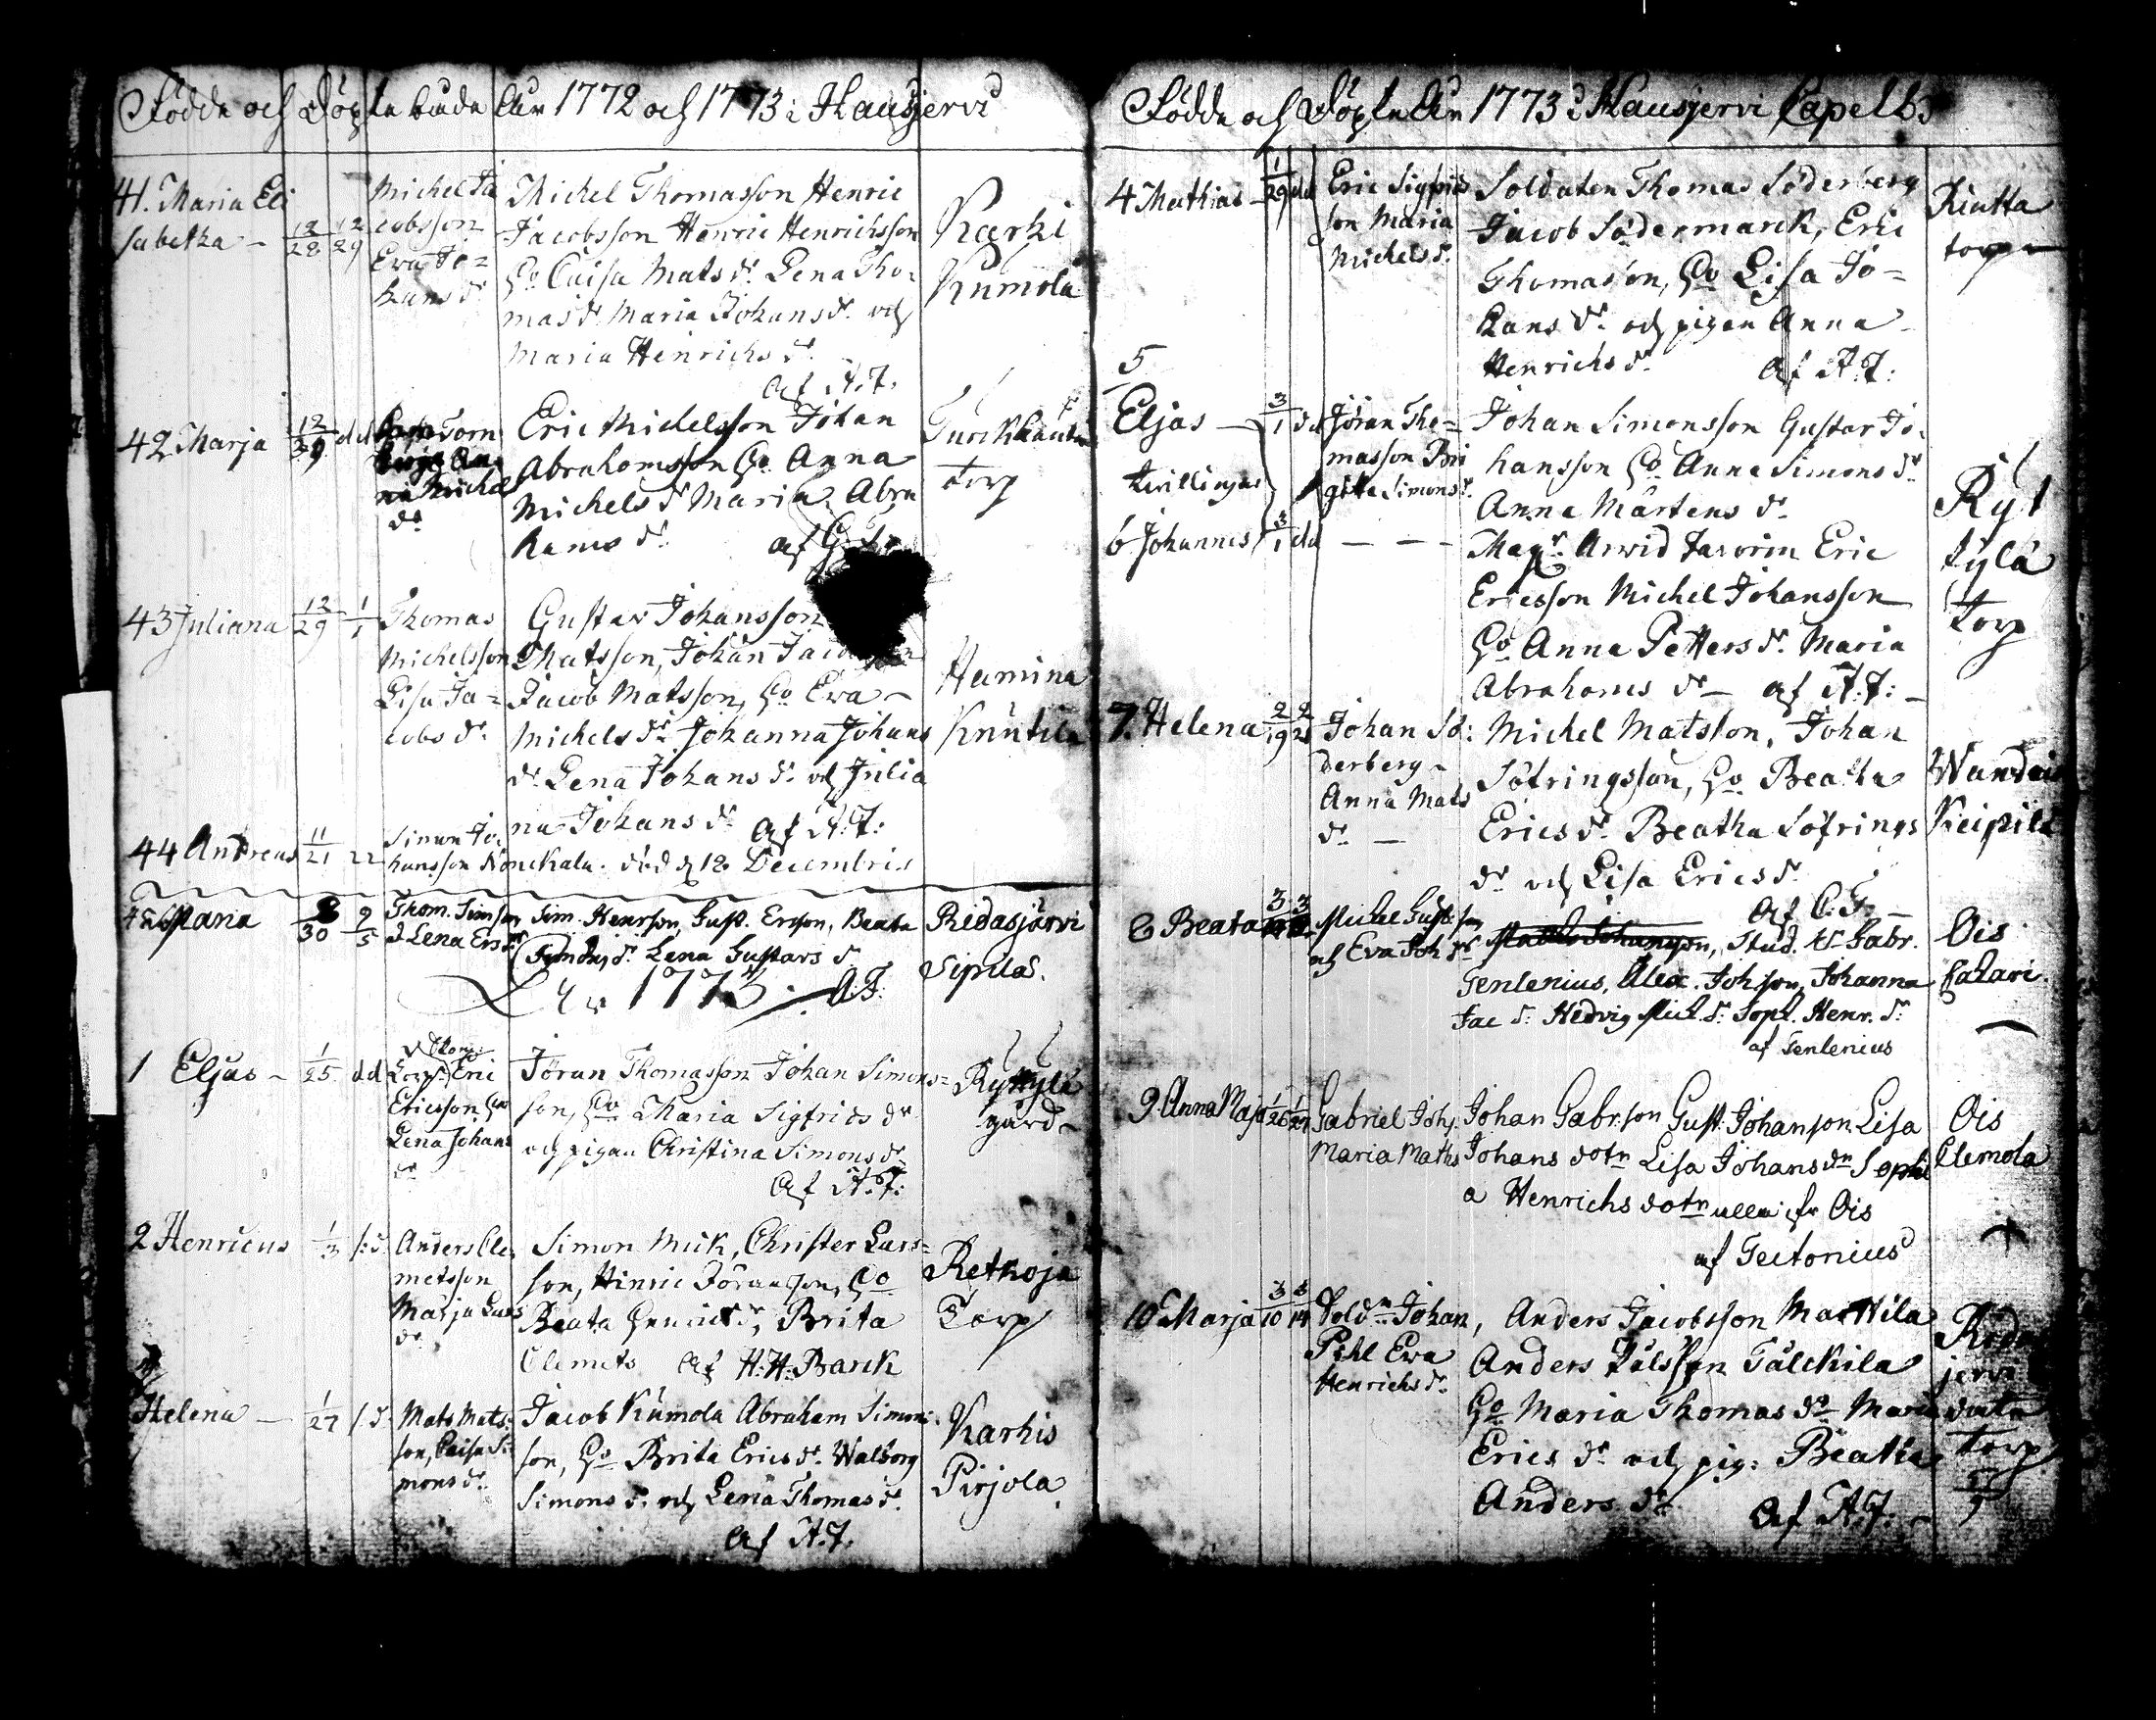 Födde och Döpte både Åhr 1772 och 1773 i Hausjervi
41. Maria Eli
sabetha – 12/28 12/29
Michel Ja
cobsson
Eva Jo=
hans dr
Michel Thomasson Henric
Jacobsson Henric Henrichsson
Qo Caisa Mats dr Lena Tho=
mas dr Maria Johans dr och
Maria Henrichs dr
Af A.J.
Karhi
Kumola
42 Marja 12/29 dd
Torn
An
na Michels
dr
Eric Michelsson Johan
Abrahamsson Qo Anna
Michels dr Maria Abra
hams dr af
torp
43 Juliana 12/29 1/1
Thomas
Michelsson
Lisa Ja=
cobs dr
Gustav Johansson
Matsson, Johan
Jacob Matsson, Qo Eva –
Michels dr Johanna Johans
dr Lena Johans dr och Julia
na Johans dr Af A.J:
Hamina
Knutila
44 Andreas 11/21 22
Simon Jo=
hansson Nonckala. död d 18 Decembris
45 Maria 8/30 9/5
Thom. Simson
Lena Ers dr
Sim. Henrson, Gust. Ersson, Beata
dr Lena Gustavs dr
A:J:
Ridasjärvi
Sipilä.
1773.
1 Eljas – 1/25 dd
Eric
Ericsson
Lena Johans
dr
Jöran Thomasson Johan Simons=
son, Qo Maria Sigfrids dr
och pigan Christina Simons dr
Af A.J:
Ryttylä
gård
2 Henricus 1/3
Anders Cle
metsson
Marja Lars
dr
Simon Muk, Christer Lars=
son, Hinric Jöransson, Qo
Beata Henrics dr, Brita
Clemets Af H:H: Barck
Retkoja
Torp
Helena – 1/27
Mats Mats=
son, Caisa Si
mons dr
Jacob Kumola Abraham Simons
son, Qo Brita Erics dr Walborg
Simons dr och Lena Thomas dr
Af A.J.
Karhis
Pirjola
Födde och Döpte Åhr 1773 i Hausjervi Capell
4 Mathias – 1/29 dd
Eric Sigfrids
son Maria
Michels dr
Soldaten Thomas Söderberg
Jacob Södermarck, Eric
Thomasson, Qo Lisa Jo=
hans dr och pigan Anna
Henrichs dr Af A.J:
torp
5
Eljas – 3/1 dd
tvillingar
Jöran Tho=
masson Bri
gitta Simons dr
Johan Simonsson Gustav Jo=
hansson Qo Anna Simons dr
Anna Mårtens dr
6 Johannes 3/1 dd – – –
Magr. Arvid Eric
Ericsson Michel Johansson
Qo Anna Petters dr Maria
Abrahams dr – af A.J: –
Ryt
tylä
torp
7. Helena 2/19 2/21
Johan Sö=
derberg –
Anna Mats
dr –
Michel Matsson, Johan
Söfringsson, Qo Beatha
Erics dr Beatha Söfrings
dr och Lisa Erics dr
Keipilä
8 Beata
Michel Gust.son
och Eva Joh dr
Stud. Gabr.
Tenlenius, Alex. Johson, Johanna
Jac dr Hedvig Mich. dr Soph. Henr. dr
af Tenlenius
Ois
9. Anna Maja 1/26 1/27
Gabriel Johs.
Maria Maths
Johan Gabr.son Gust. Johanson Lisa
Johans dotr Lisa Johans dr Sophi
a Henrichs dotr alla ifr Ois
af Tectonius
Ois
Clemola
10 Marja 3/10 3/14
Soldn Johan
Pihl Eva
Henrichs dr
Anders Jacobsson Mattila
Anders Tälckilä
Qo Maria Thomas dr Maria
Erics dr och pig: Beatha
Anders dr Af A.J: –
Torp